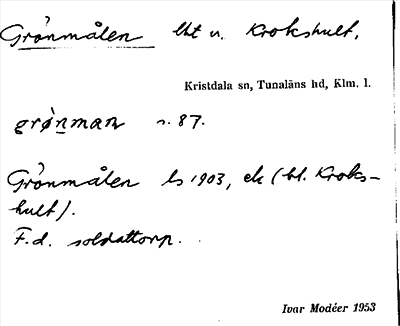 Grönmålen lht u. Krokshult,
Kristdala sn, Tunaläns hd, Klm. l.
grǿn̲man s. 87.
Grönmålen ls 1903, ek (bl. Kroks-
hult).
F.d. soldattorp.
Ivar Modéer 1953